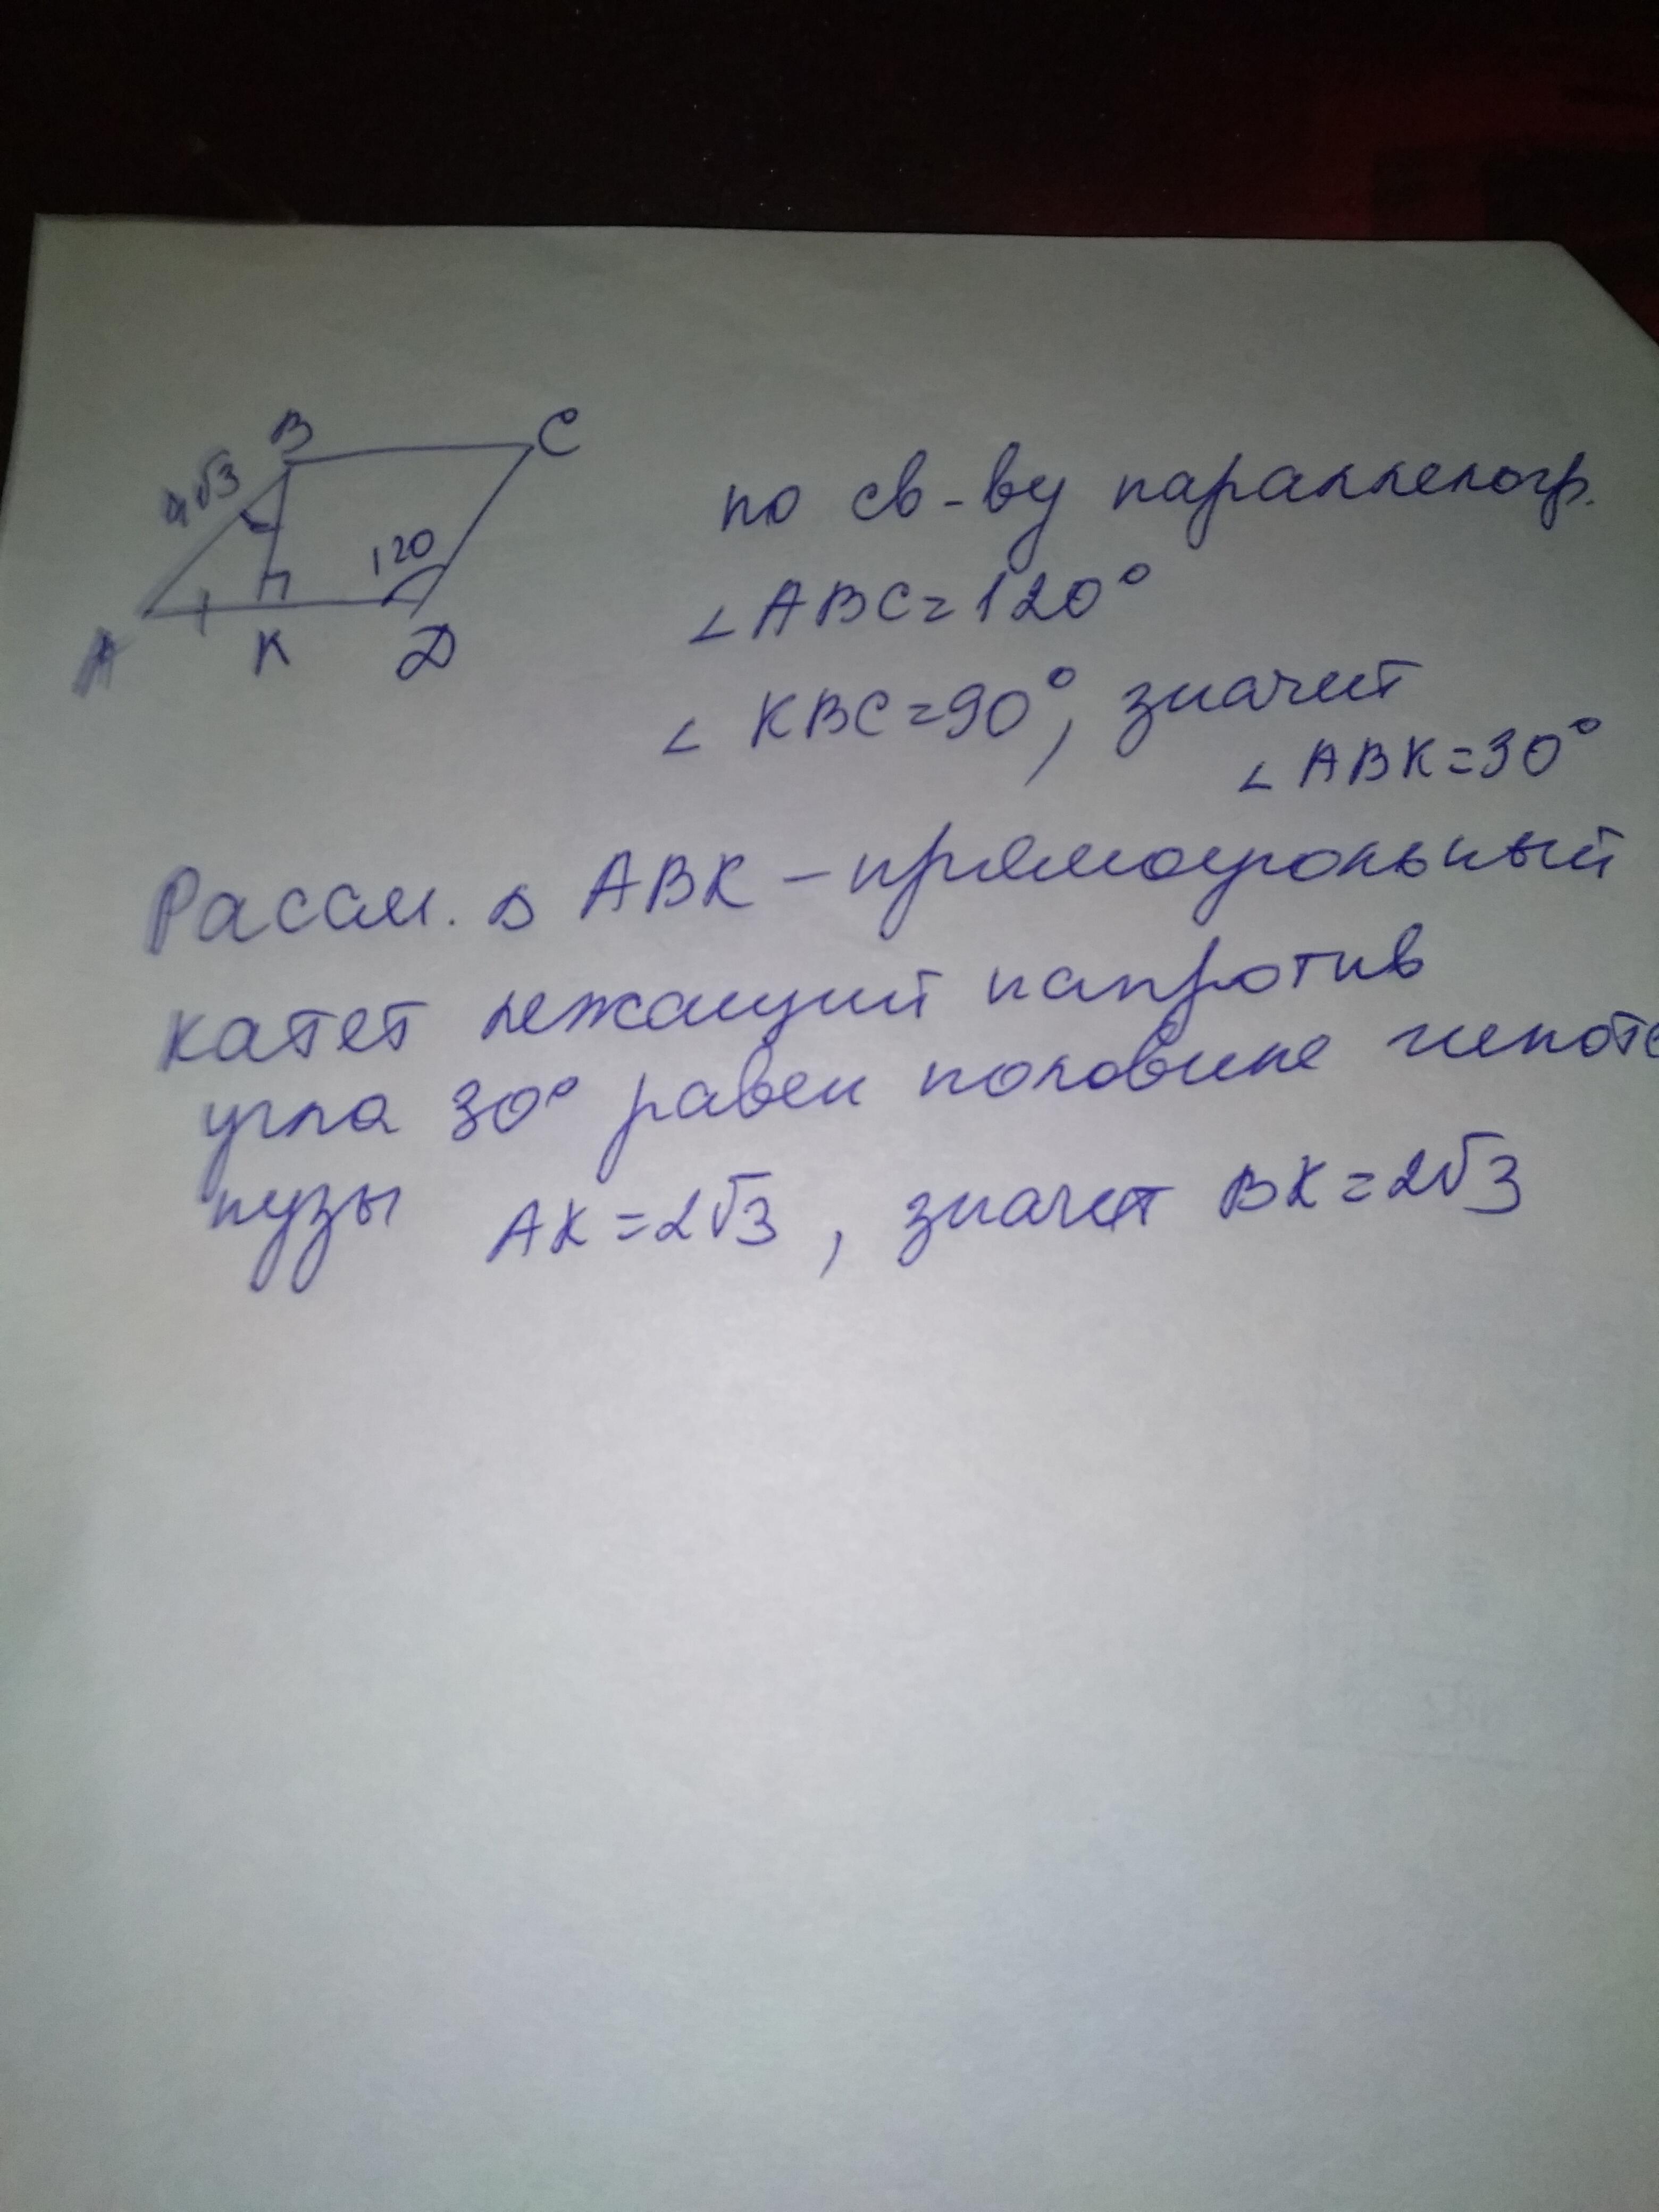 B
C
4√3
120
A
K
D
по св-ву параллелогр.
∠ABC=120°
∠KBC=90°, значит
∠ABK=30°
Рассм. △ ABK – прямоугольный
катет лежащий напротив
угла 30° равен половине гипоте
нузы AK=2√3, значит BK=2√3